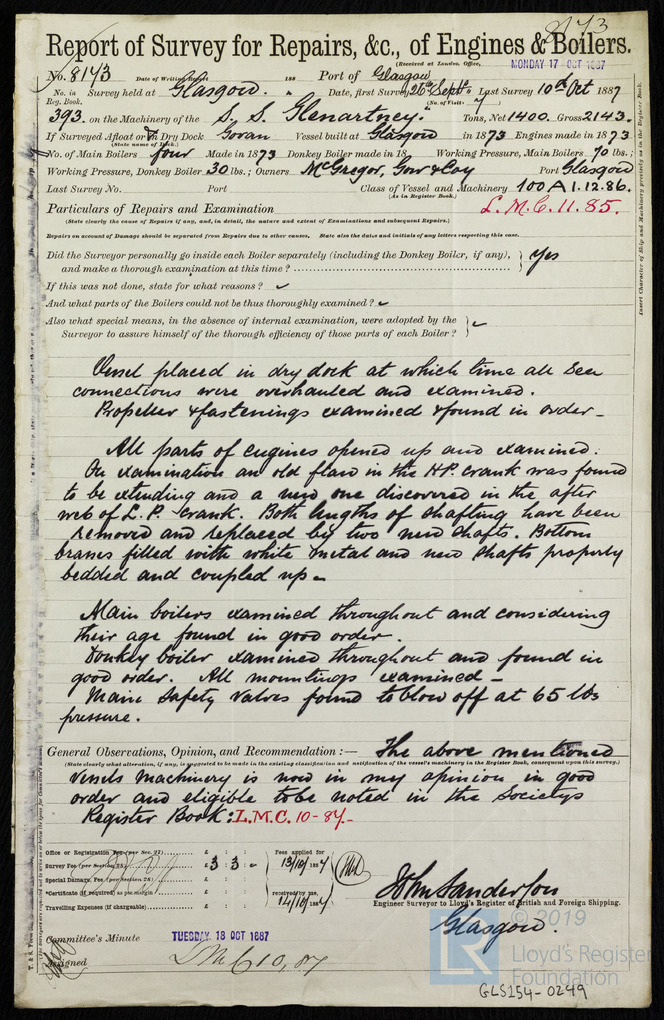 8173
Report of Survey for Repairs, &c., of Engines & Boilers.
(Received at London Office, MONDAY 17 OCT 1887
No. 8173 Date of Writing Report 188 Port of Glasgow
No. in Reg. Book. Survey held at Glasgow. Date, first Survey 26th Septr Last Survey 10th Oct 1887
(No. of Visits 7)
393. on the Machinery of the S. S. Glenartney. Tons, Net 1400. Gross 2143.
If Surveyed Afloat or in Dry Dock Govan Vessel built at Glasgow in 1873 Engines made in 1873
(State name of Dock.)
No. of Main Boilers four Made in 1873 Donkey Boiler made in 18 Working Pressure, Main Boilers 70 lbs.;
Working Pressure, Donkey Boiler 30 lbs.; Owners McGregor, Gow & Coy Port Glasgow
Last Survey No. Port Class of Vessel and Machinery 100 A 1. 12. 86.
(As in Register Book.)
Particulars of Repairs and Examination L.M.C. 11. 85.
(State clearly the cause of Repairs if any, and, in detail, the nature and extent of Examinations and subsequent Repairs.)
Repairs on account of Damage should be separated from Repairs due to other causes. State also the dates and initials of any letters respecting this case.
Did the Surveyor personally go inside each Boiler separately (including the Donkey Boiler, if any), and make a thorough examination at this time? Yes
If this was not done, state for what reasons? ✓
And what parts of the Boilers could not be thus thoroughly examined? ✓
Also what special means, in the absence of internal examination, were adopted by the Surveyor to assure himself of the thorough efficiency of those parts of each Boiler? ✓
Vessel placed in dry dock at which time all Sea
connections were overhauled and examined.
Propeller & fastenings examined & found in order -
All parts of engines opened up and examined.
On examination an old flaw in the H.P. crank was found
to be extending and a new one discovered in the after
web of L.P. crank. Both lengths of shafting have been
removed and replaced by two new shafts. Bottom
brasses filled with white metal and new shafts properly
bedded and coupled up -
Main boilers examined throughout and considering
their age found in good order.
Donkey boiler examined throughout and found in
good order. All mountings examined -
Main Safety Valves found to blow off at 65 lbs
pressure.
General Observations, Opinion, and Recommendation :— The above mentioned
(State clearly what alteration, if any, is suggested to be made in the existing classification and notification of the vessel's machinery in the Register Book, consequent upon this survey.)
Vessels Machinery is now in my opinion in good
order and eligible to be noted in the Societys
Register Book: L.M.C. 10-87-
Office or Registration Fee (per Sec. 27) £ : :
Survey Fee (per Section 28) £ 3 : 3 : -
Special Damage Fee (per Section 28) £ : :
*Certificate (if required) as per margin £ : :
Travelling Expenses (if chargeable) £ : :
Fees applied for
13/10/1887
received by me,
14/10/1887
John Sanderson
Engineer Surveyor to Lloyd's Register of British and Foreign Shipping.
Glasgow.
Committee's Minute TUESDAY 18 OCT 1887
Assigned L M C 10, 87
Insert Character of Ship and Machinery precisely as in the Register Book.
© 2019
LR
Lloyd's Register
Foundation
GLS154-0249